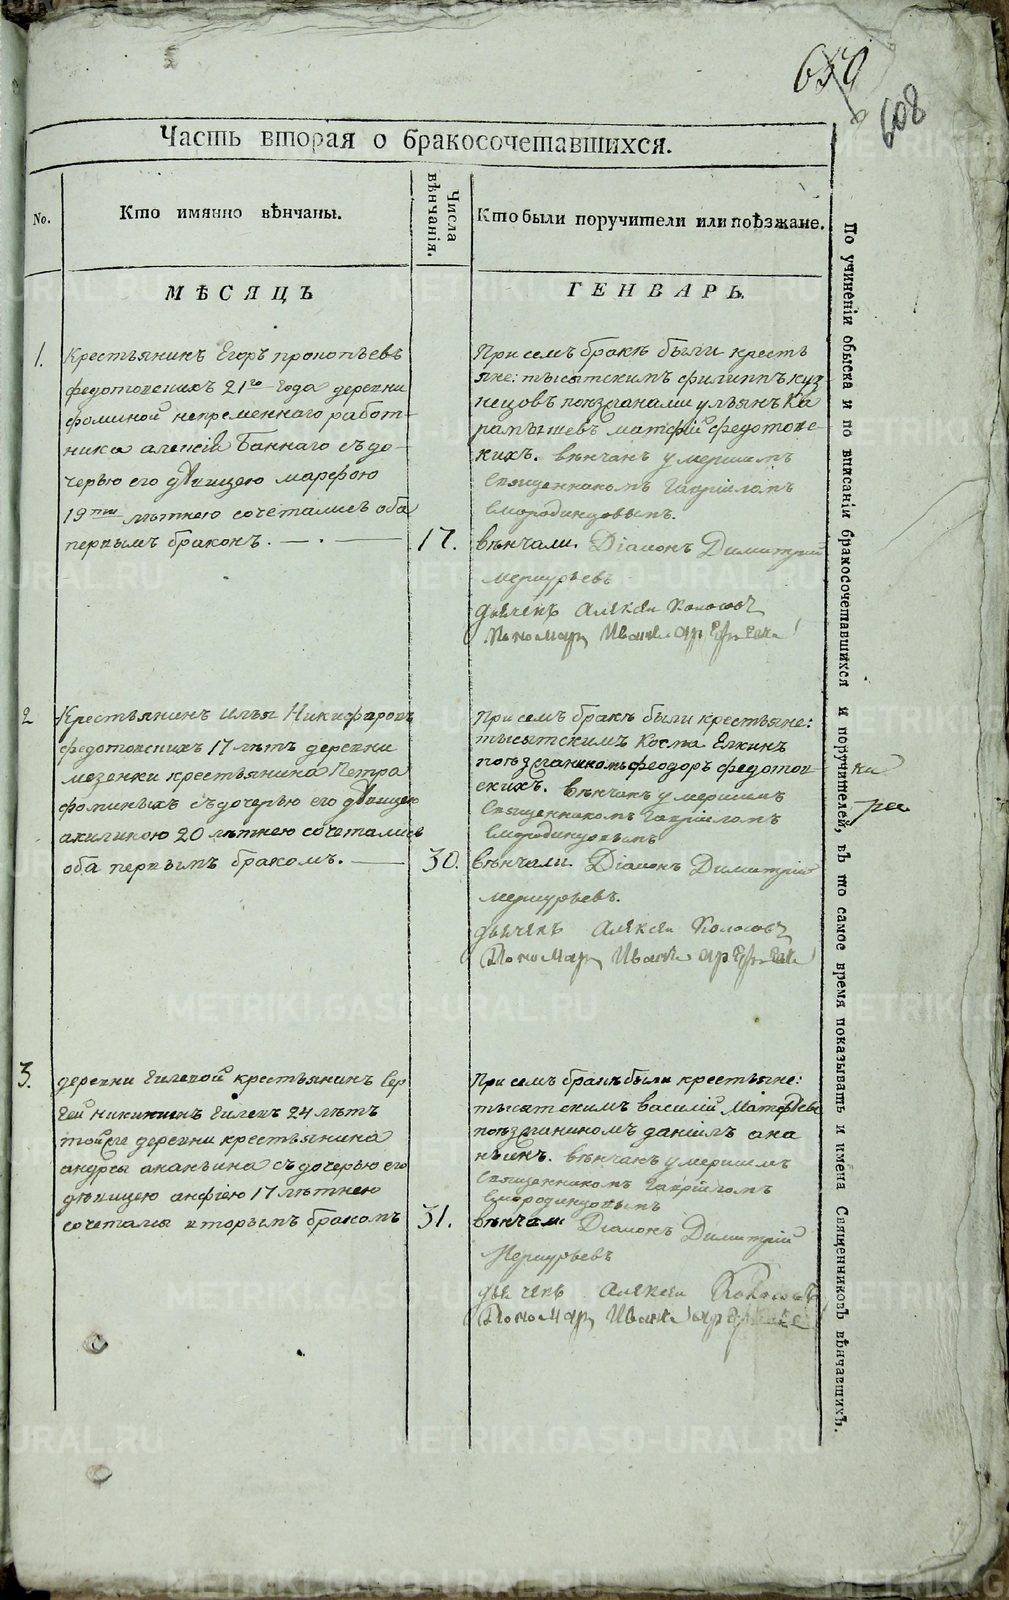 659
608
Часть вторая о бракосочетавшихся.
No.
Кто имянно вѣнчаны.
Числа вѣнчанія.
Кто были поручители или поѣзжане.
По учиненіи обыска и по вписаніи бракосочетавшихся и поручителей, въ то самое время показывать и имена Священниковъ вѣнчавшихъ.
МѢСЯЦЪ
ГЕНВАРЬ.
1.
Крестьянинъ Егоръ прокопьевъ
федотовскихъ 21го года деревни
фоминой непременнаго работ
ника алексія Баннаго съ до-
черью его дѣвицею марфою
19ти лѣтнею сочетались оба
первымъ бракомъ.
17.
При семъ бракѣ были кресть
яне: тысятскимъ филиппъ куз
нецовъ поѣзжанами ульянъ Ка
рапышевъ матфій федотовс
кихъ. вѣнчанъ умершимъ
Священникомъ Гавріиломъ
Смородинцовымъ.
вѣнчали. Діаконъ Димитрій
меркурьевъ
дьячекъ Алексѣи Колосовъ
Пономарь Иванъ
2
Крестьянинъ илья Никифаровъ
федотовскихъ 17 лѣтъ деревни
мезенки крестьянина Петра
фоминыхъ съ дочерью его дѣвицею
акилиною 20 лѣтнею сочетались
оба первымъ бракомъ.
30.
При семъ бракѣ были крестьяне:
тысятскимъ Косма Елкинъ
поѣзжаниномъ феодоръ федотов
скихъ. вѣнчанъ умершимъ
Священникомъ Гавріиломъ
Смородинцовымъ
вѣнчали. Діаконъ Димитрій
меркурьевъ.
дьячекъ Алексѣи Колосовъ
Пономарь Иванъ
3.
деревни Гилевой крестьянинъ Сер
гей никитинъ Гилевъ 24 лѣтъ
тойже деревни крестьянина
андреы ананьина съ дочерью его
дѣвицею анфіею 17 лѣтнею
сочетался вторымъ бракомъ
31.
При семъ бракѣ были крестьяне:
тысятскимъ василій Матвѣевъ
поѣзжаниномъ даніилъ ана
ньинъ. вѣнчанъ умершимъ
Священникомъ Гавріиломъ
Смородинцовымъ
вѣнчали Діаконъ Димитрій
Меркурьевъ
дьячекъ Алексѣи Колосовъ
Пономарь Иванъ
METRIKI.GASO-URAL.RU